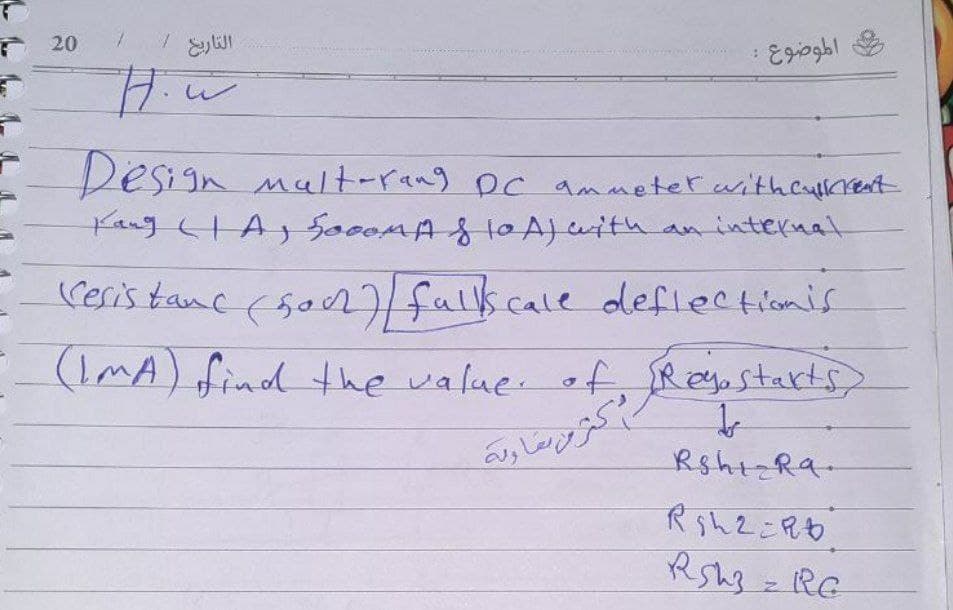 الموضوع :
التاريخ / / 20
H.w
Design mult-rang DC ammeter with current
rang (1A, 5000mA & 10A) with an internal
resistanc (50Ω) full scale deflection is
(1mA) find the value of Reyostarts
أكثر من مقاومة
Rsh1=Ra
Rsh2=Rb
Rsh3=RC